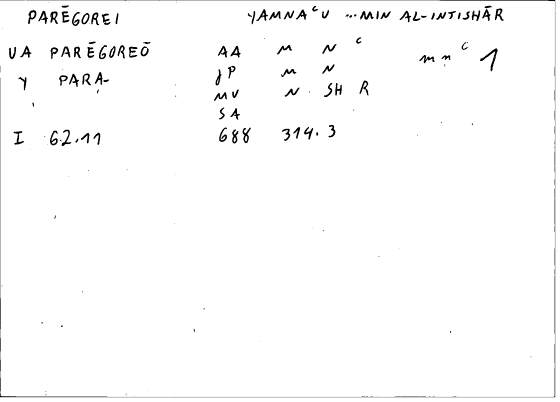 PARĒGOREI YAMNAᶜU ...MIN AL-INTISHĀR
VA PARĒGOREŌ AA M N ᶜ mnᶜ 1
Y PARA- JP M N
MV N SH R
SA
I 62.11 688 314.3